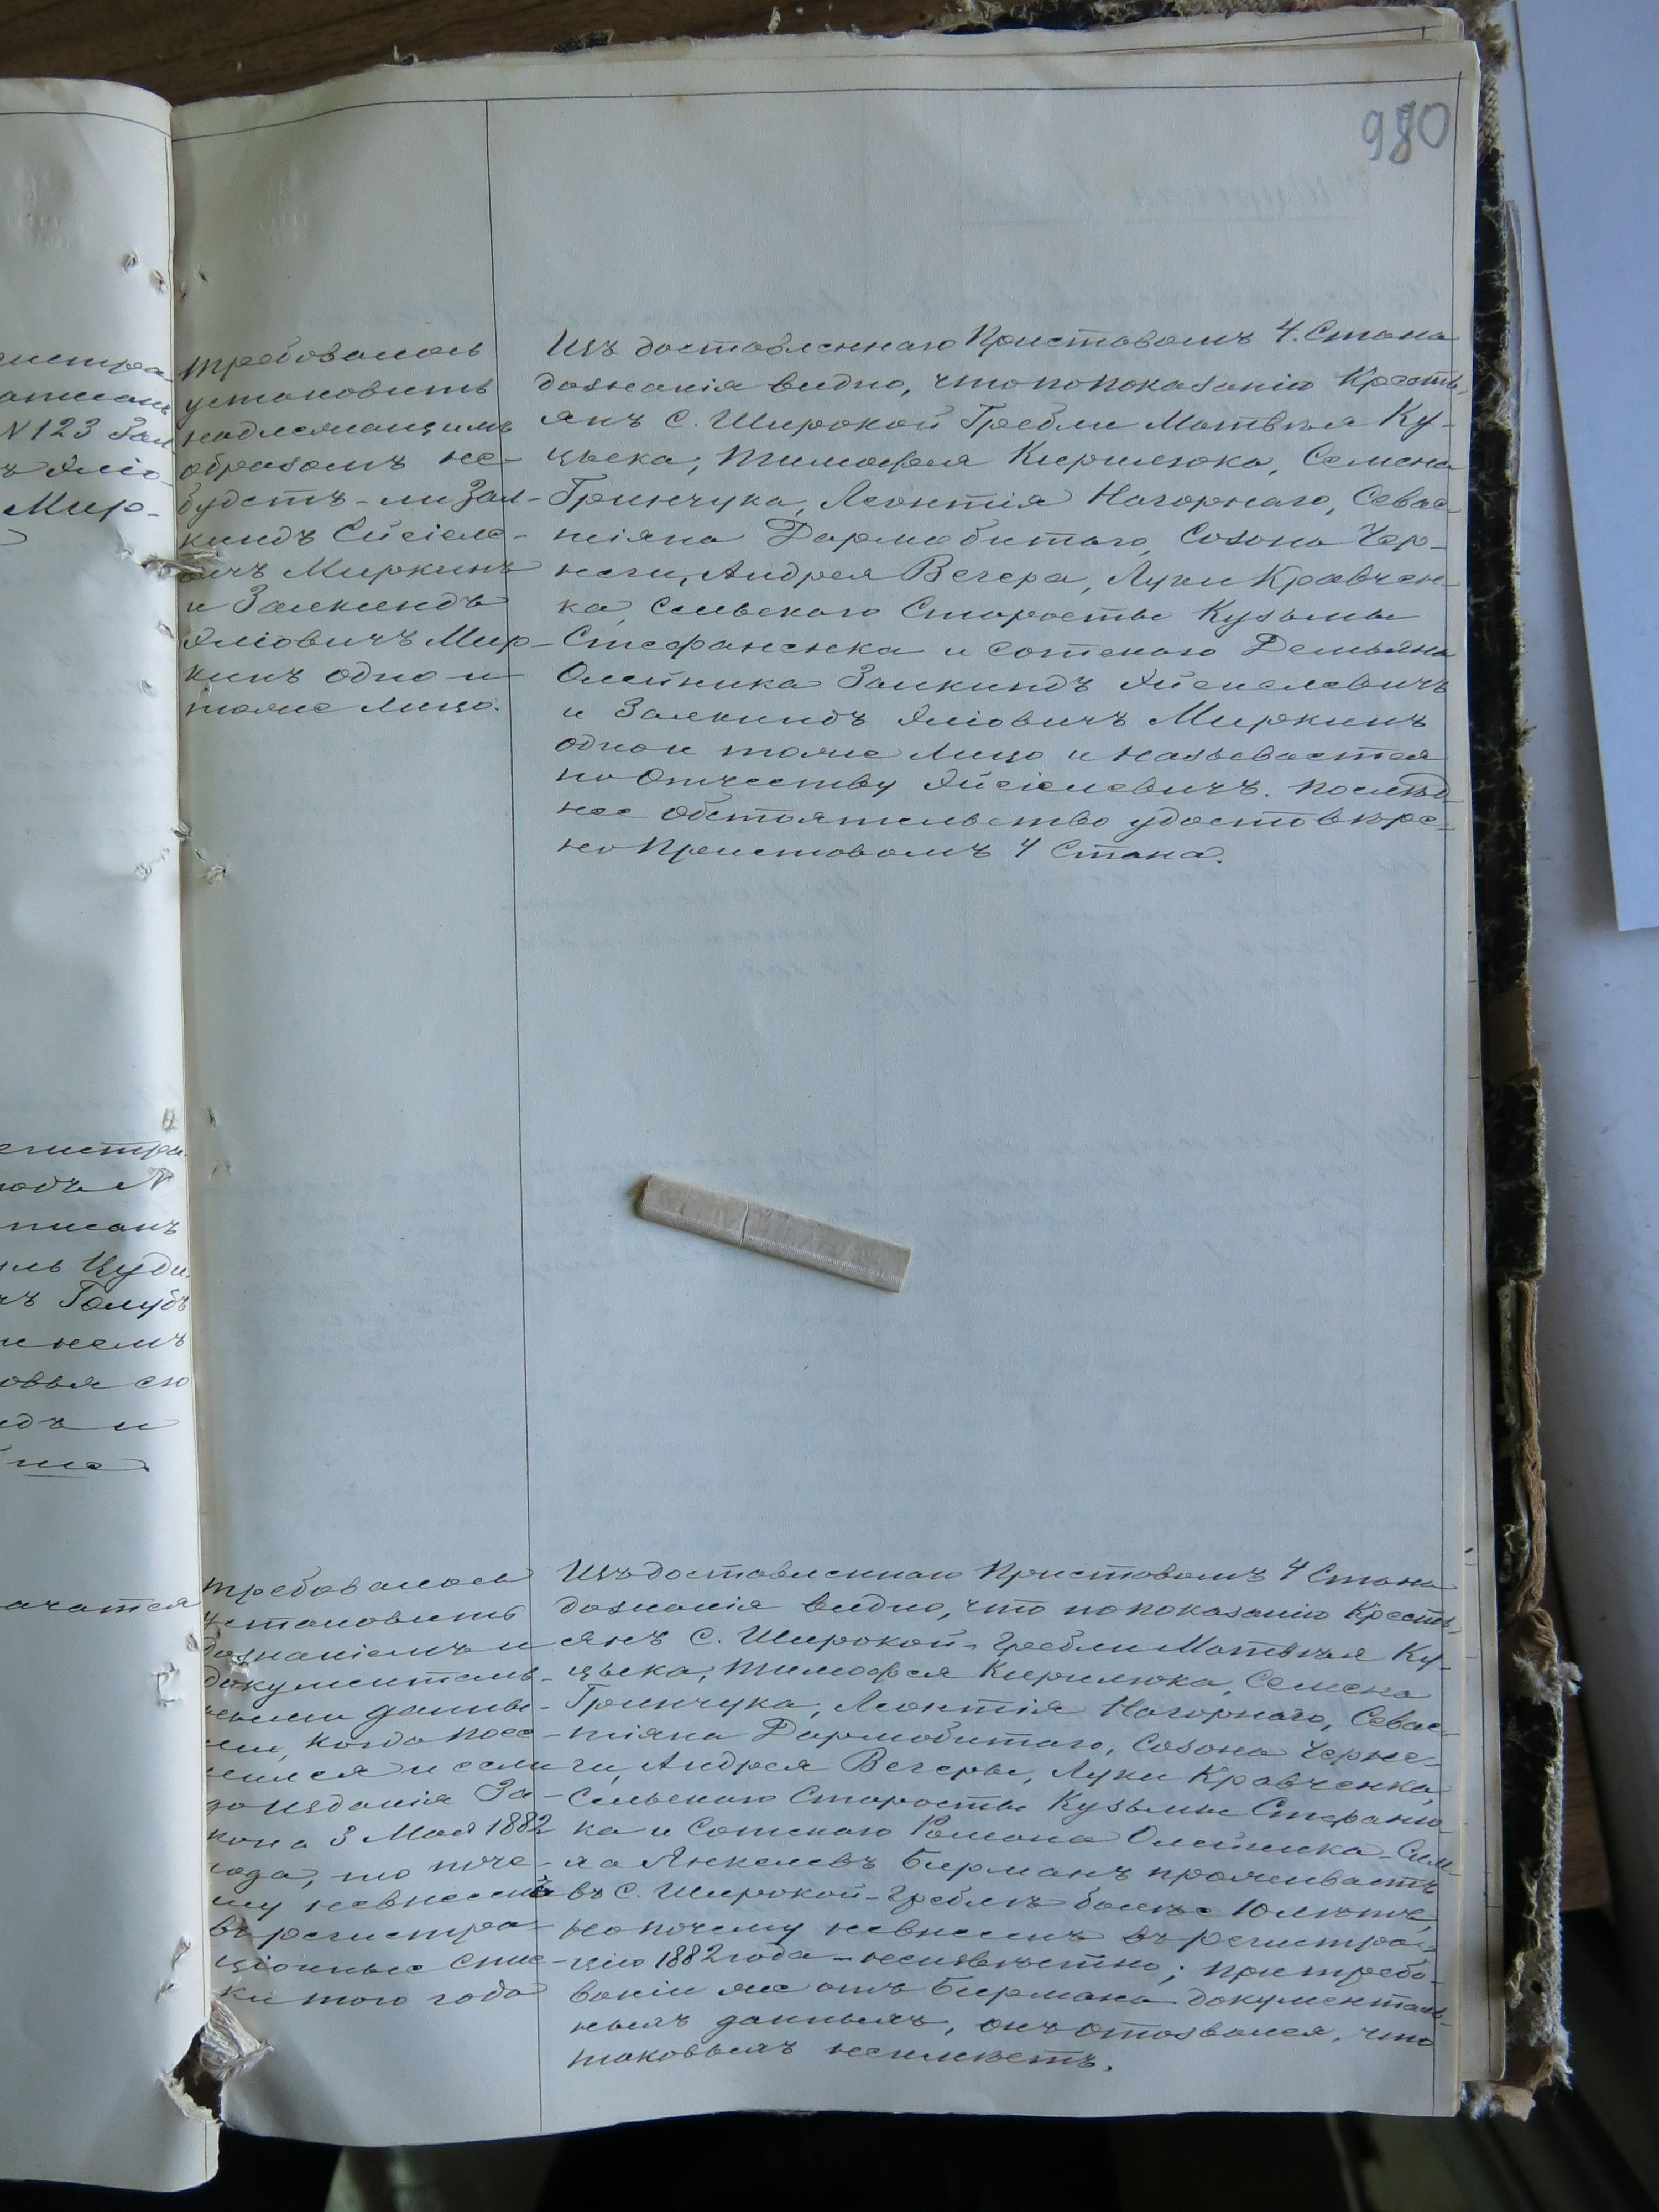 980
требовалось
установить
надлежащимъ
образомъ не
будетъ-ли Зал-
киндъ Сйсіеле-
вичъ Миркинъ
и Залкиндъ
Яліовичъ Мир-
кинъ одно и
тоже лицо.
Изъ доставленнаго Приставомъ 4. Стана
дознанія видно, что по показанію Кресть-
янъ с. Широкой Гребли Матвѣя Ку-
цыка, Тимофея Кирилюка, Семена
Гринчука, Леонтія Нагорнаго, Севас-
тіяна Дармобитаго, Созона Чер-
неги, Андрея Вегера, Луки Кравчен-
ка, Сельскаго Старосты Кузьмы
Стефаненка и сотскаго Демьяна
Олейника Залкиндъ Яйселевичъ
и Залкиндъ Яліовичъ Миркинъ
одно и тоже лицо и называется
по Отчеству Яйсіелевичъ. Послѣд
нее обстоятельство удостовѣре-
но Приставомъ 4 Стана.
требовалось
установить
дознаніемъ и
документаль-
ными данны-
ми, когда посе-
лился и если
до изданія За-
кона 3 Мая 1882
года, то поче-
му не внесенъ
въ регистра-
ціонные спис-
ки того года
Изъ доставленнаго Приставомъ 4 Стана
дознанія видно, что по показанію Кресть-
янъ с. Широкой-Гребли Матвѣя Ку-
цыка, Тимофея Кирилюка, Семена
Гринчука, Леонтія Нагорнаго, Севас-
тіяна Дармобитаго, Созона Черне-
ги, Андрея Вегеры, Луки Кравченка,
Сельскаго Старосты Кузьмы Стефанен
ка и Сотскаго Романа Олейника
Янкелевъ Бирманъ проживаетъ
въ с. Широкой-Греблѣ болѣе 10 лѣтъ,
но почему не внесенъ въ регистра-
цію 1882 года - неизвѣстно; при требо-
ваніи же отъ Бирмана документаль-
ныхъ данныхъ, онъ отозвался, что
таковыхъ неимѣетъ.